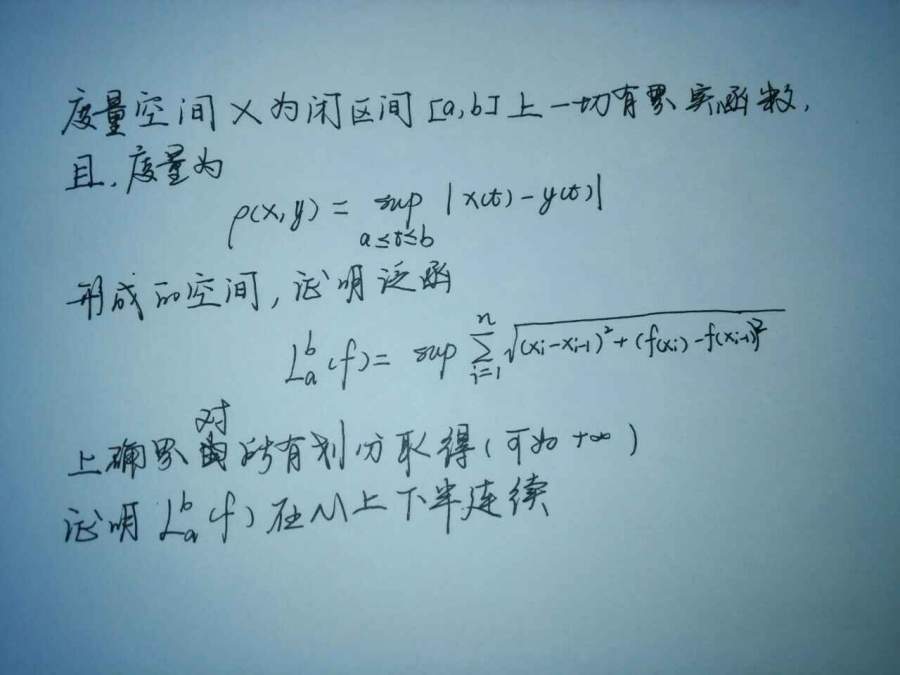 度量空间 X 为闭区间 [a,b] 上一切有界实函数,
且,度量为
ρ(x,y) = sup_{a≤t≤b} |x(t) - y(t)|
形成的空间,证明泛函
L_a^b(f) = sup ∑_{i=1}^{n} √((x_i - x_{i-1})² + (f(x_i) - f(x_{i-1}))²
上确界对所有划分取得(可为 +∞)
证明 L_a^b(f) 在 M 上下半连续